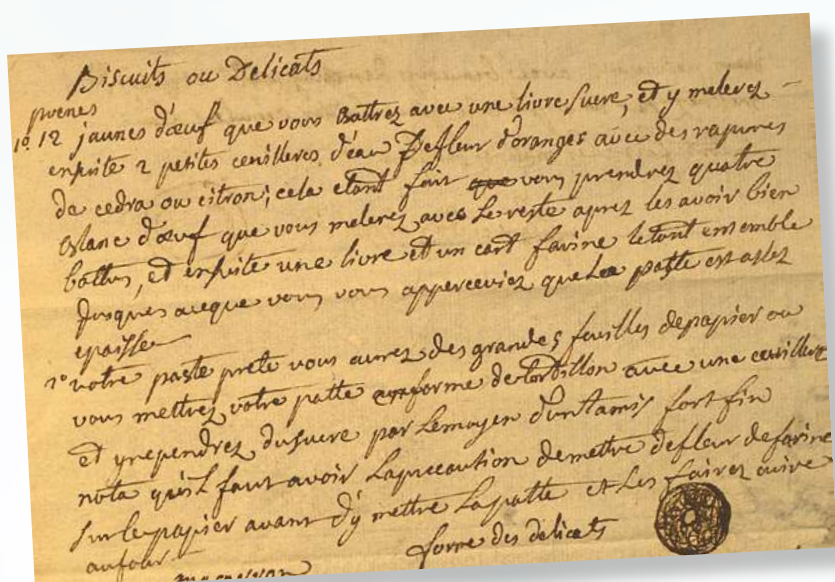 Biscuits ou Delicats
prenes
1º 12 jaunes d'œuf que vous Battrez avec une livre sucre, et y melerez
ensuite 2 petites ceuilleres d'eau De fleur d'oranges avec des rapures
de cedra ou citron; cela etant fait que vous prendrez quatre
Blanc d'œuf que vous melerez avec Le reste aprez les avoir bien
battus, et ensuite une livre et un cart farine le tout ensemble
Jusques aceque vous vous apperceviez que La paste est assez
epaisse
2º votre paste prete vous aurez des grandes feuilles de papier ou
vous mettrez votre patte forme de tortillon avec une ceuillere
et y rependrez du sucre par Le moyen d'un tamis fort fin
nota qu'il faut avoir La precaution de mettre de fleur de farine
sur le papier avant d'y mettre La patte et Les fairez cuire
au four
forme des délicats